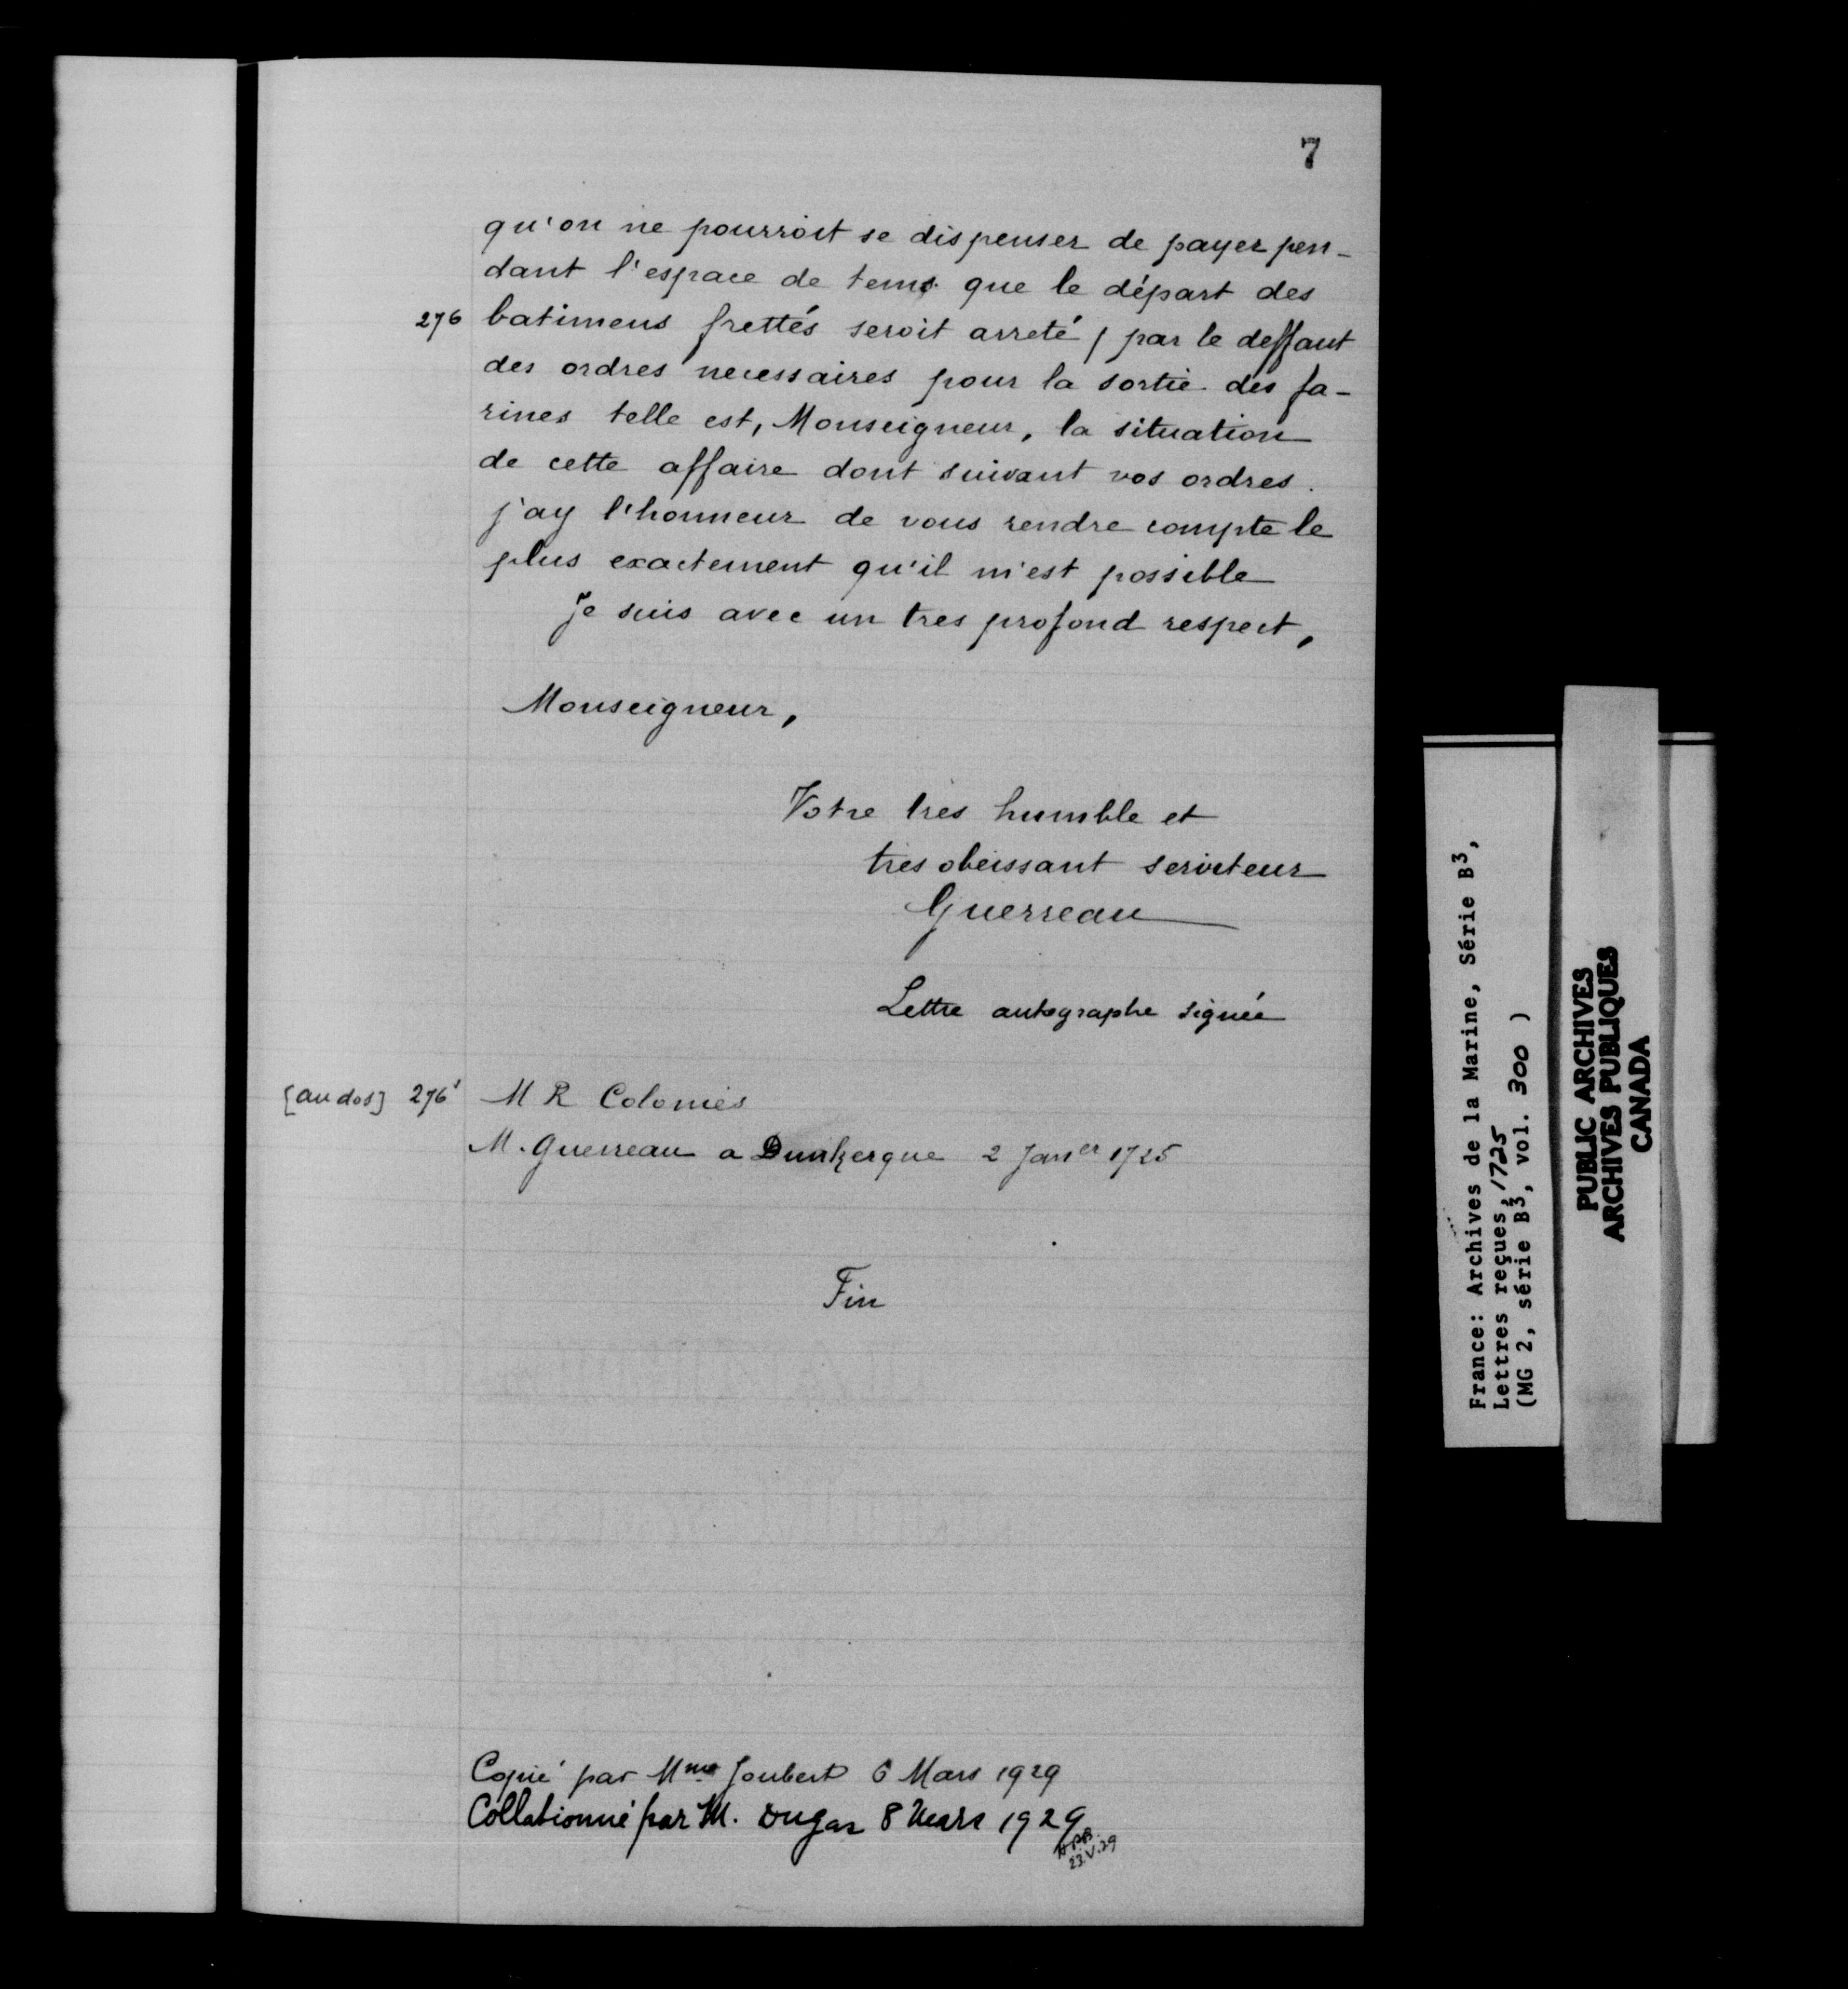 7
qu'on ne pourroit se dispenser de payer pen-
dant l'espace de tems que le départ des
276 batimens frettés seroit arreté / par le deffaut
des ordres necessaires pour la sortie des fa-
rines telle est, Monseigneur, la situation
de cette affaire dont suivant vos ordres.
j'ay l'honneur de vous rendre compte le
plus exactement qu'il m'est possible
Je suis avec un tres profond respect,
Monseigneur,
Votre tres humble et
tres obeissant serviteur
Guerreau
Lettre autographe signée
[au dos] 276v M R Colonies
M. Guerreau a Dunkerque 2 Janer 1725
Fin
Copié par Mme Joubert 6 Mars 1929
Collationné par M. Dugas 8 Mars 1929
23.V.29
France: Archives de la Marine, Série B3,
Lettres reçues, 1725
(MG 2, série B3, vol. 300 )
PUBLIC ARCHIVES
ARCHIVES PUBLIQUES
CANADA